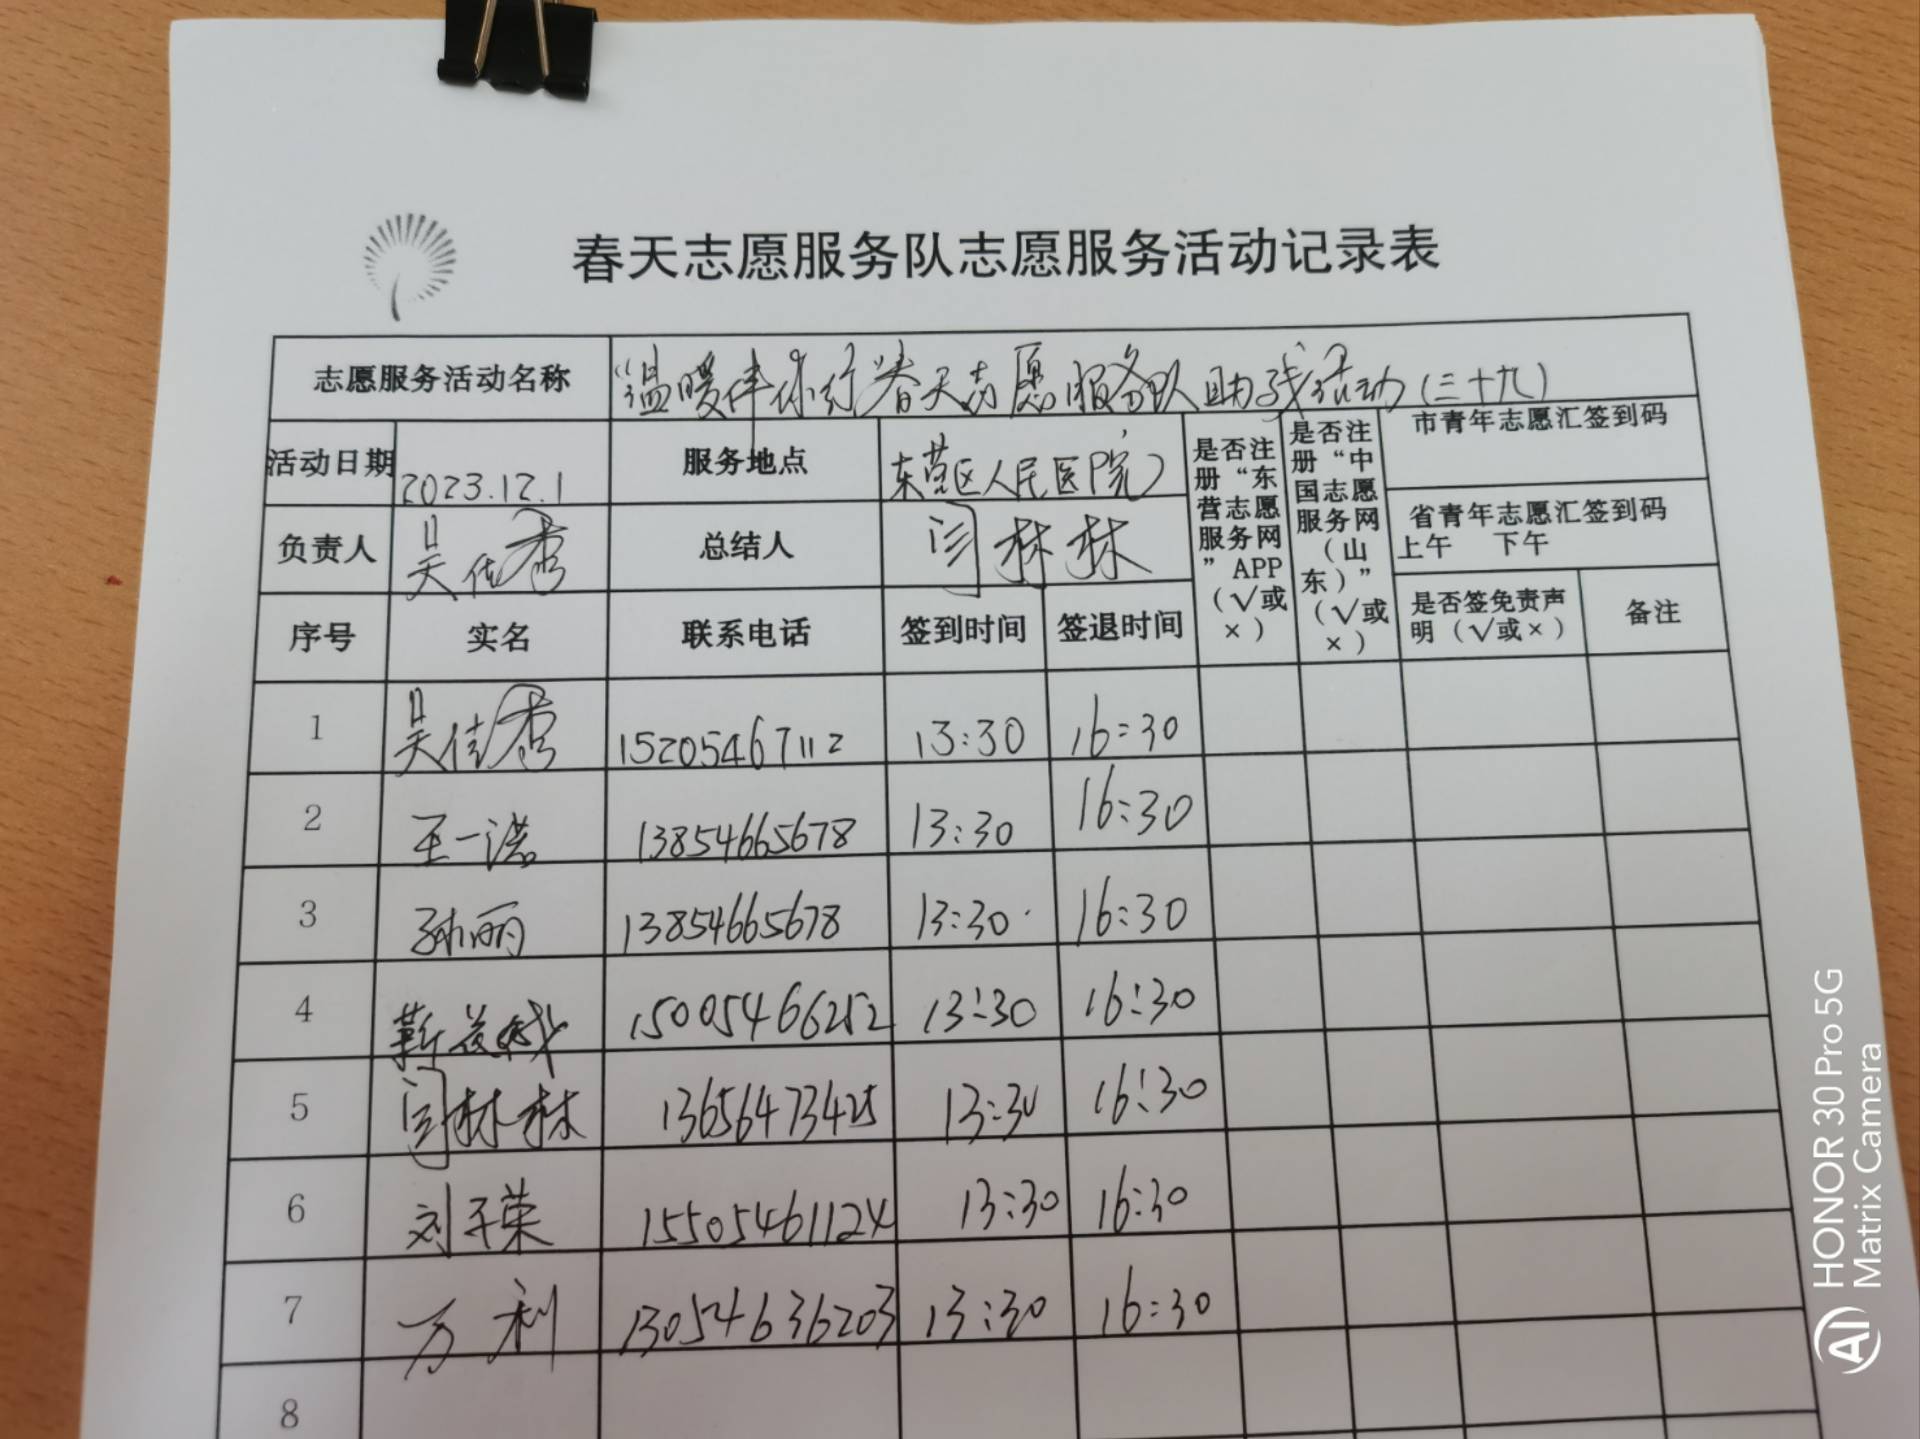 春天志愿服务队志愿服务活动记录表
志愿服务活动名称 “温暖伴你行”春天志愿服务队助残活动(三十九)
活动日期 2023.12.1 服务地点 东营区人民医院
负责人 吴佳秀 总结人 闫林林
是否注册“东营志愿服务网”APP(√或×)
是否注册“中国志愿服务网(山东)”(√或×)
市青年志愿汇签到码
省青年志愿汇签到码
上午 下午
序号 实名 联系电话 签到时间 签退时间 是否签免责声明(√或×) 备注
1 吴佳秀 15205467112 13:30 16:30
2 王一诺 13854665678 13:30 16:30
3 孙丽 13854665678 13:30 16:30
4 靳 15005466252 13:30 16:30
5 闫林林 13656473425 13:30 16:30
6 刘子荣 15505461124 13:30 16:30
7 万利 13054636203 13:30 16:30
8
HONOR 30 Pro 5G
Matrix Camera
AI